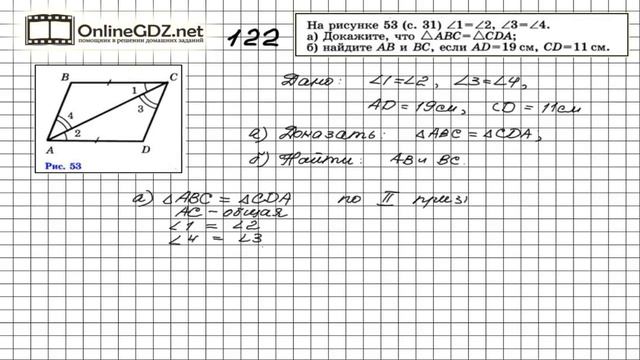 OnlineGDZ.net
помощники в решении домашних заданий
122
На рисунке 53 (с. 31) ∠1=∠2, ∠3=∠4.
а) Докажите, что △ABC=△CDA;
б) найдите AB и BC, если AD=19 см, CD=11 см.
B C
1
3
4
2
A D
Рис. 53
Дано: ∠1=∠2, ∠3=∠4,
AD=19см, CD=11см
а) Доказать: △ABC=△CDA,
б) Найти: AB и BC.
а) △ABC=△CDA по II приз
AC-общая
∠1 = ∠2
∠4 = ∠3